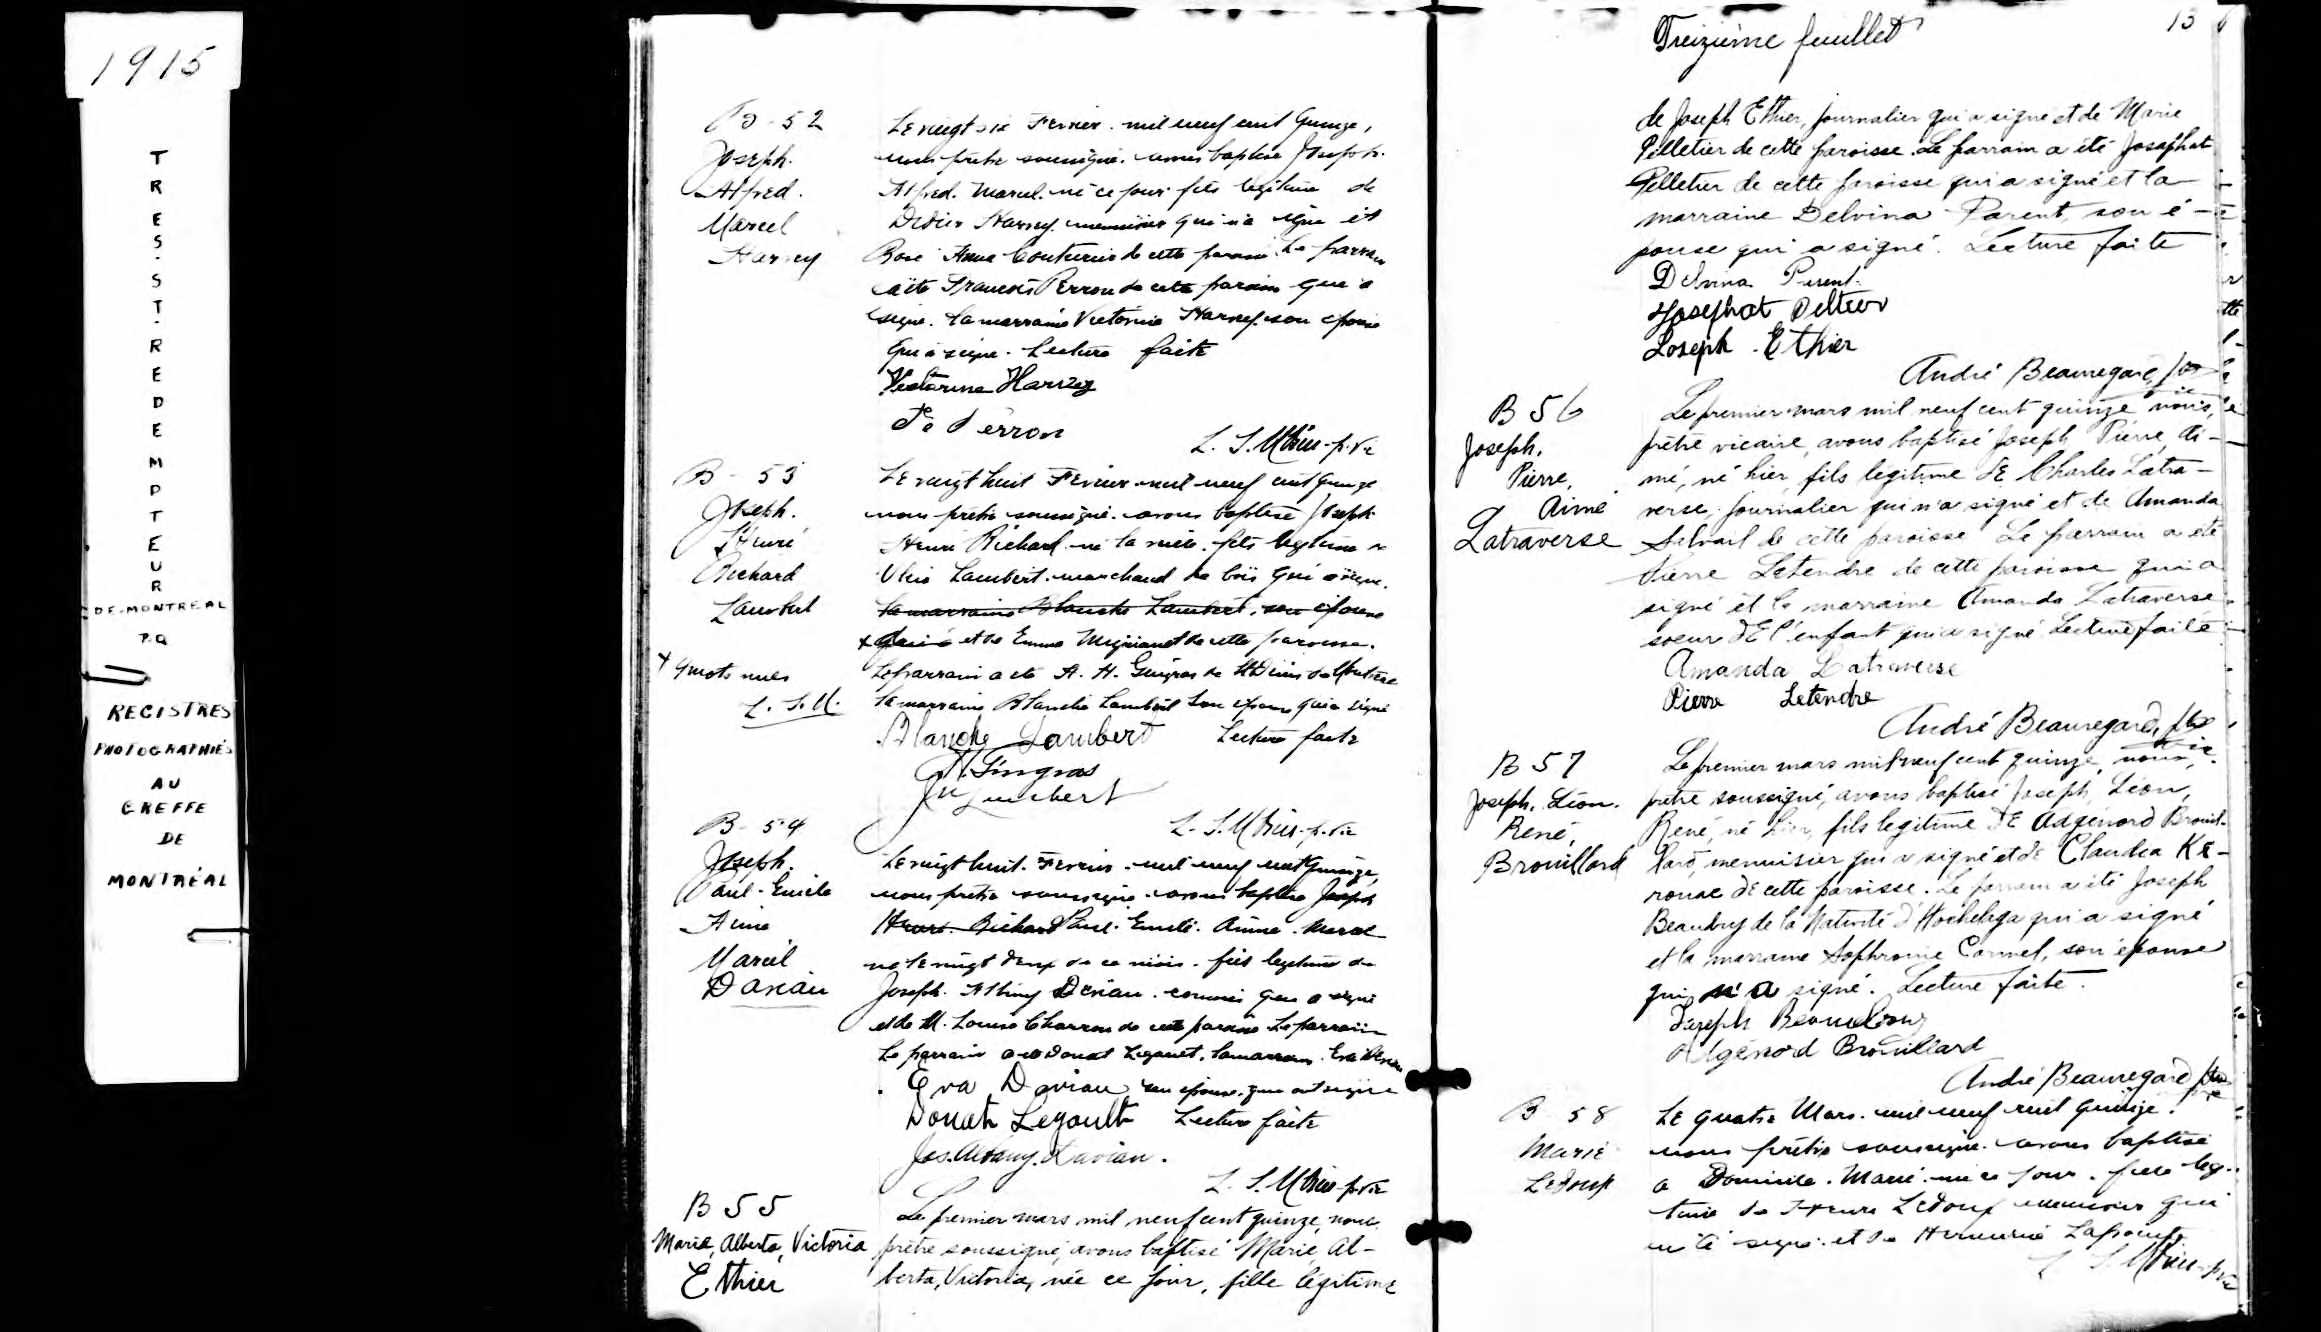 1915
TRES. ST. REDEMPTEUR
DE-MONTREAL
P.Q
REGISTRES
PHOTOGRAPHIÉS
AU
GREFFE
DE
MONTRÉAL
B - 52
Joseph.
Alfred.
Marcel
Harvey
Le vingt six Fevrier. mil neuf cent quinze,
nous prêtre soussigné. avons baptisé Joseph.
Alfred. Marcel. né ce jour fils legitime de
Didier Harvey. menuisier qui n'a signé et
Rose Anna Couturier de cette paroisse. Le parrain
a été François Perron de cette paroisse qui a
signé. La marraine Victorine Harvey. son epouse
qui a signé. Lecture faite
Victorine Harvey
Perron
B - 53
Joseph.
Henri
Richard
Lambert
+ quatre mots nuls
Le vingt huit Fevrier mil neuf cent quinze
nous prêtre soussigné. avons baptisé Joseph
Henri Richard né la veille. fils legitime de
Lambert. marchand de bois qui a signé.
la marraine Blanche Lambert, son épouse
et de Emma de cette paroisse.
Le parrain a été A. H. Gingras de St Denis de Montréal
la marraine Blanche Lambert son epouse qui a signé
Blanche Lambert Lecture faite
Gingras
Lambert
B - 54
Joseph.
Paul-Emile
Aimé
Marcel
Daviau
Le vingt huit. Fevrier. mil neuf cent quinze,
nous prêtre soussigné. avons baptisé Joseph
Henri. Richard Paul. Emile. Aimé. Marcel
né le vingt deux de ce mois. fils legitime de
Joseph. Albany Daviau. commis qui a signé
et de M. Louise Charron de cette paroisse Le parrain
Le parrain a été Donat Legault. la marraine. Eva Daviau
Eva Daviau son epouse. qui ont signé
Donat Legault Lecture faite
Jos. Albany. Daviau.
B 55
Marie, Alberta, Victoria
Ethier
Le premier mars mil neuf cent quinze, nous
prêtre soussigné, avons baptisé Marie, Al-
berta, Victoria, née ce jour, fille légitime
Treizième feuillet
13
de Joseph Ethier, journalier qui a signé et de Marie
Pelletier de cette paroisse. Le parrain a été Josaphat
Pelletier de cette paroisse qui a signé et la
marraine Delvina Parent, son é-
pouse qui a signé. Lecture faite
Delvina Parent.
Josephat Peltier
Joseph Ethier
André Beauregard, ptre
B 56
Joseph,
Pierre,
Aimé
Latraverse
Le premier mars mil neuf cent quinze nous,
prêtre vicaire, avons baptisé Joseph, Pierre, Ai-
mé, né hier, fils legitime de Charles Latra-
verse, journalier qui n'a signé et de Amanda
Salvail de cette paroisse Le parrain a été
Pierre Letendre de cette paroisse qui a
signé et la marraine Amanda Latraverse
soeur de l'enfant qui a signé Lecture faite
Amanda Latraverse
Pierre Letendre
André Beauregard, ptre
vic.
B 57
Joseph, Léon.
René,
Brouillard
Le premier mars mil neuf cent quinze, nous,
prêtre soussigné, avons baptisé Joseph, Léon,
René, né hier, fils legitime de Adgénord Brouil-
lard, menuisier qui a signé et de Claudia Ké-
rouac de cette paroisse. Le parrain a été Joseph
Beaudry de la Nativité d'Hochelaga qui a signé
et la marraine Sophronie Cormel, son épouse
qui n'a signé. Lecture faite.
Joseph Beaudry
Adgénord Brouillard
André Beauregard ptre
B 58
Marie
Ledoux
Le quatre Mars. mil neuf cent quinze.
nous prêtre soussigné. avons baptisé
a Domicile. Marie née ce jour. fille legi-
time de Henri Ledoux menuisier qui
n'a signé. et de Herminie Lapointe